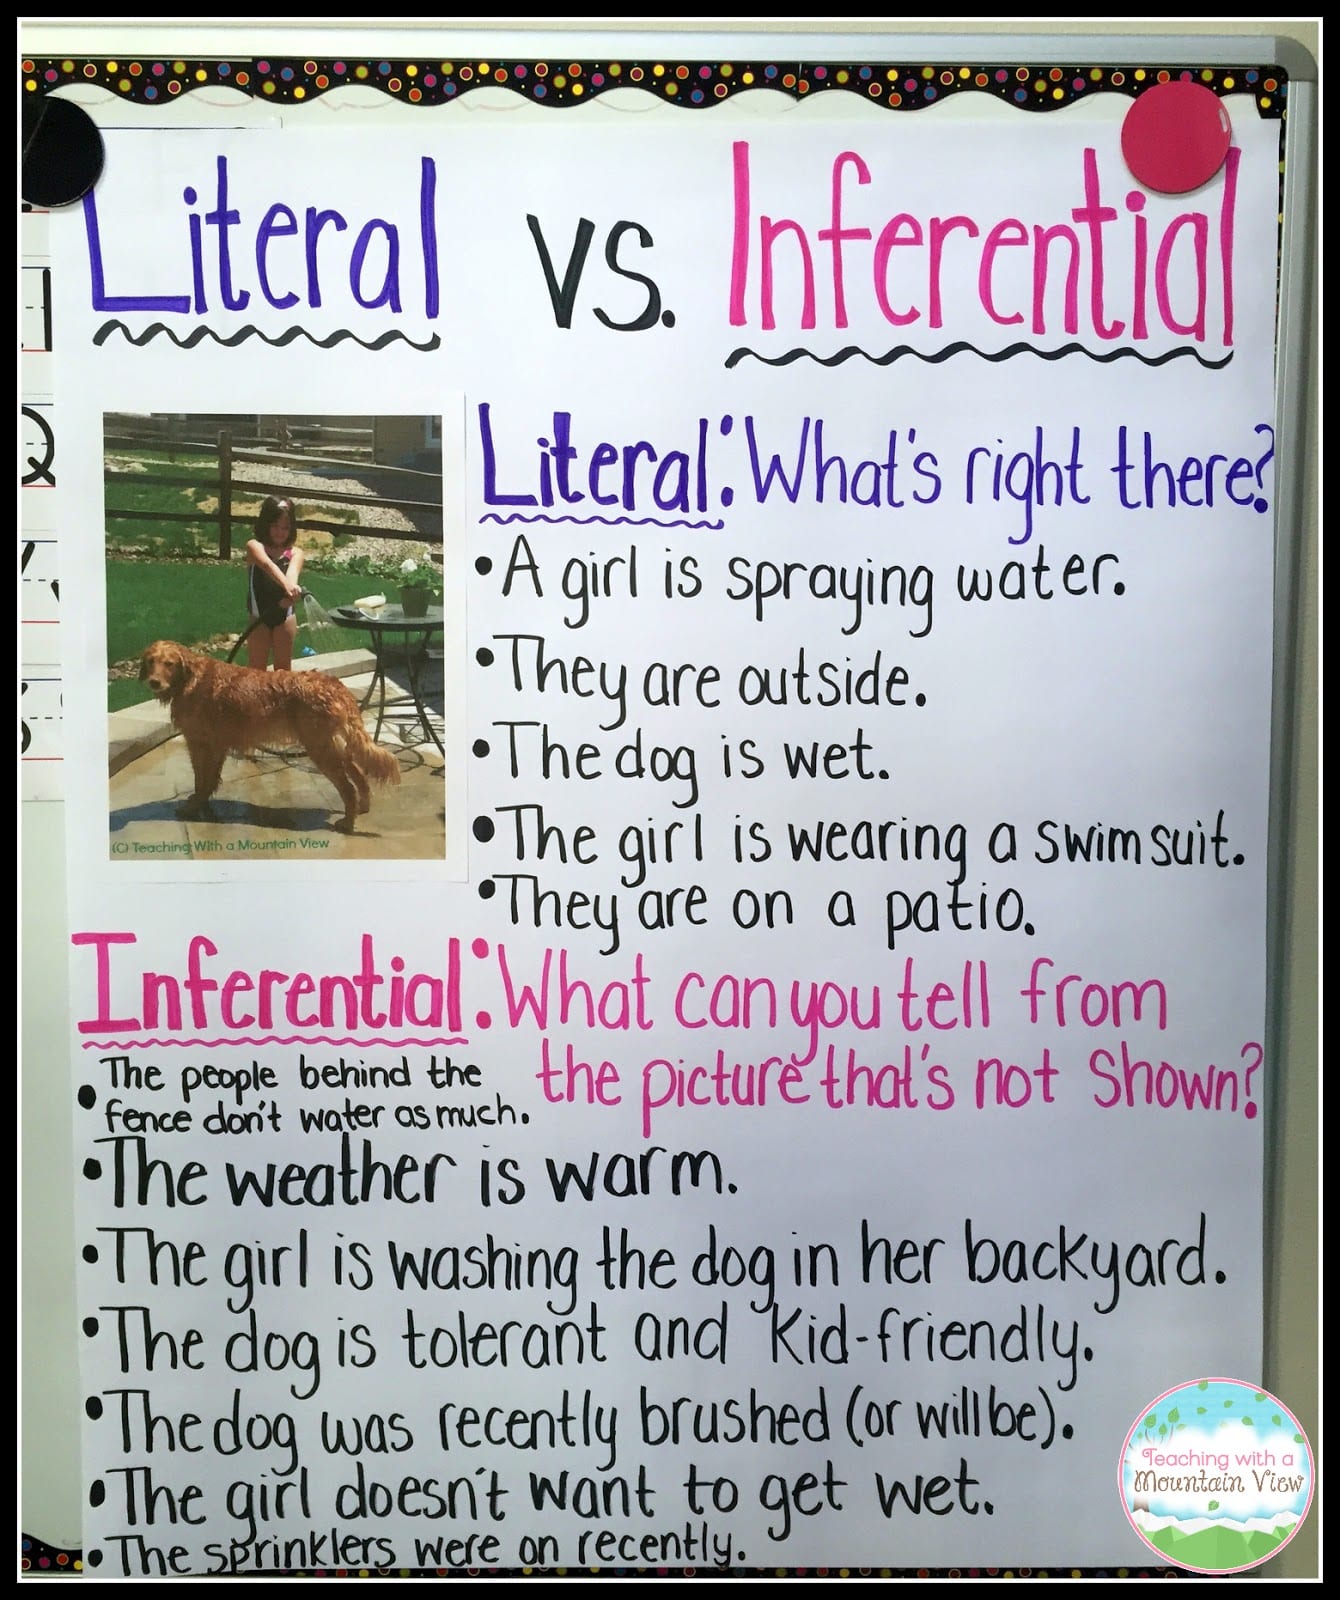 Literal vs. Inferential
(C) Teaching With a Mountain View
Literal: What's right there?
• A girl is spraying water.
• They are outside.
• The dog is wet.
• The girl is wearing a swimsuit.
• They are on a patio.
Inferential: What can you tell from
the picture that's not shown?
• The people behind the
fence don't water as much.
• The weather is warm.
• The girl is washing the dog in her backyard.
• The dog is tolerant and kid-friendly.
• The dog was recently brushed (or will be).
• The girl doesn't want to get wet.
• The sprinklers were on recently.
Teaching with a
Mountain View